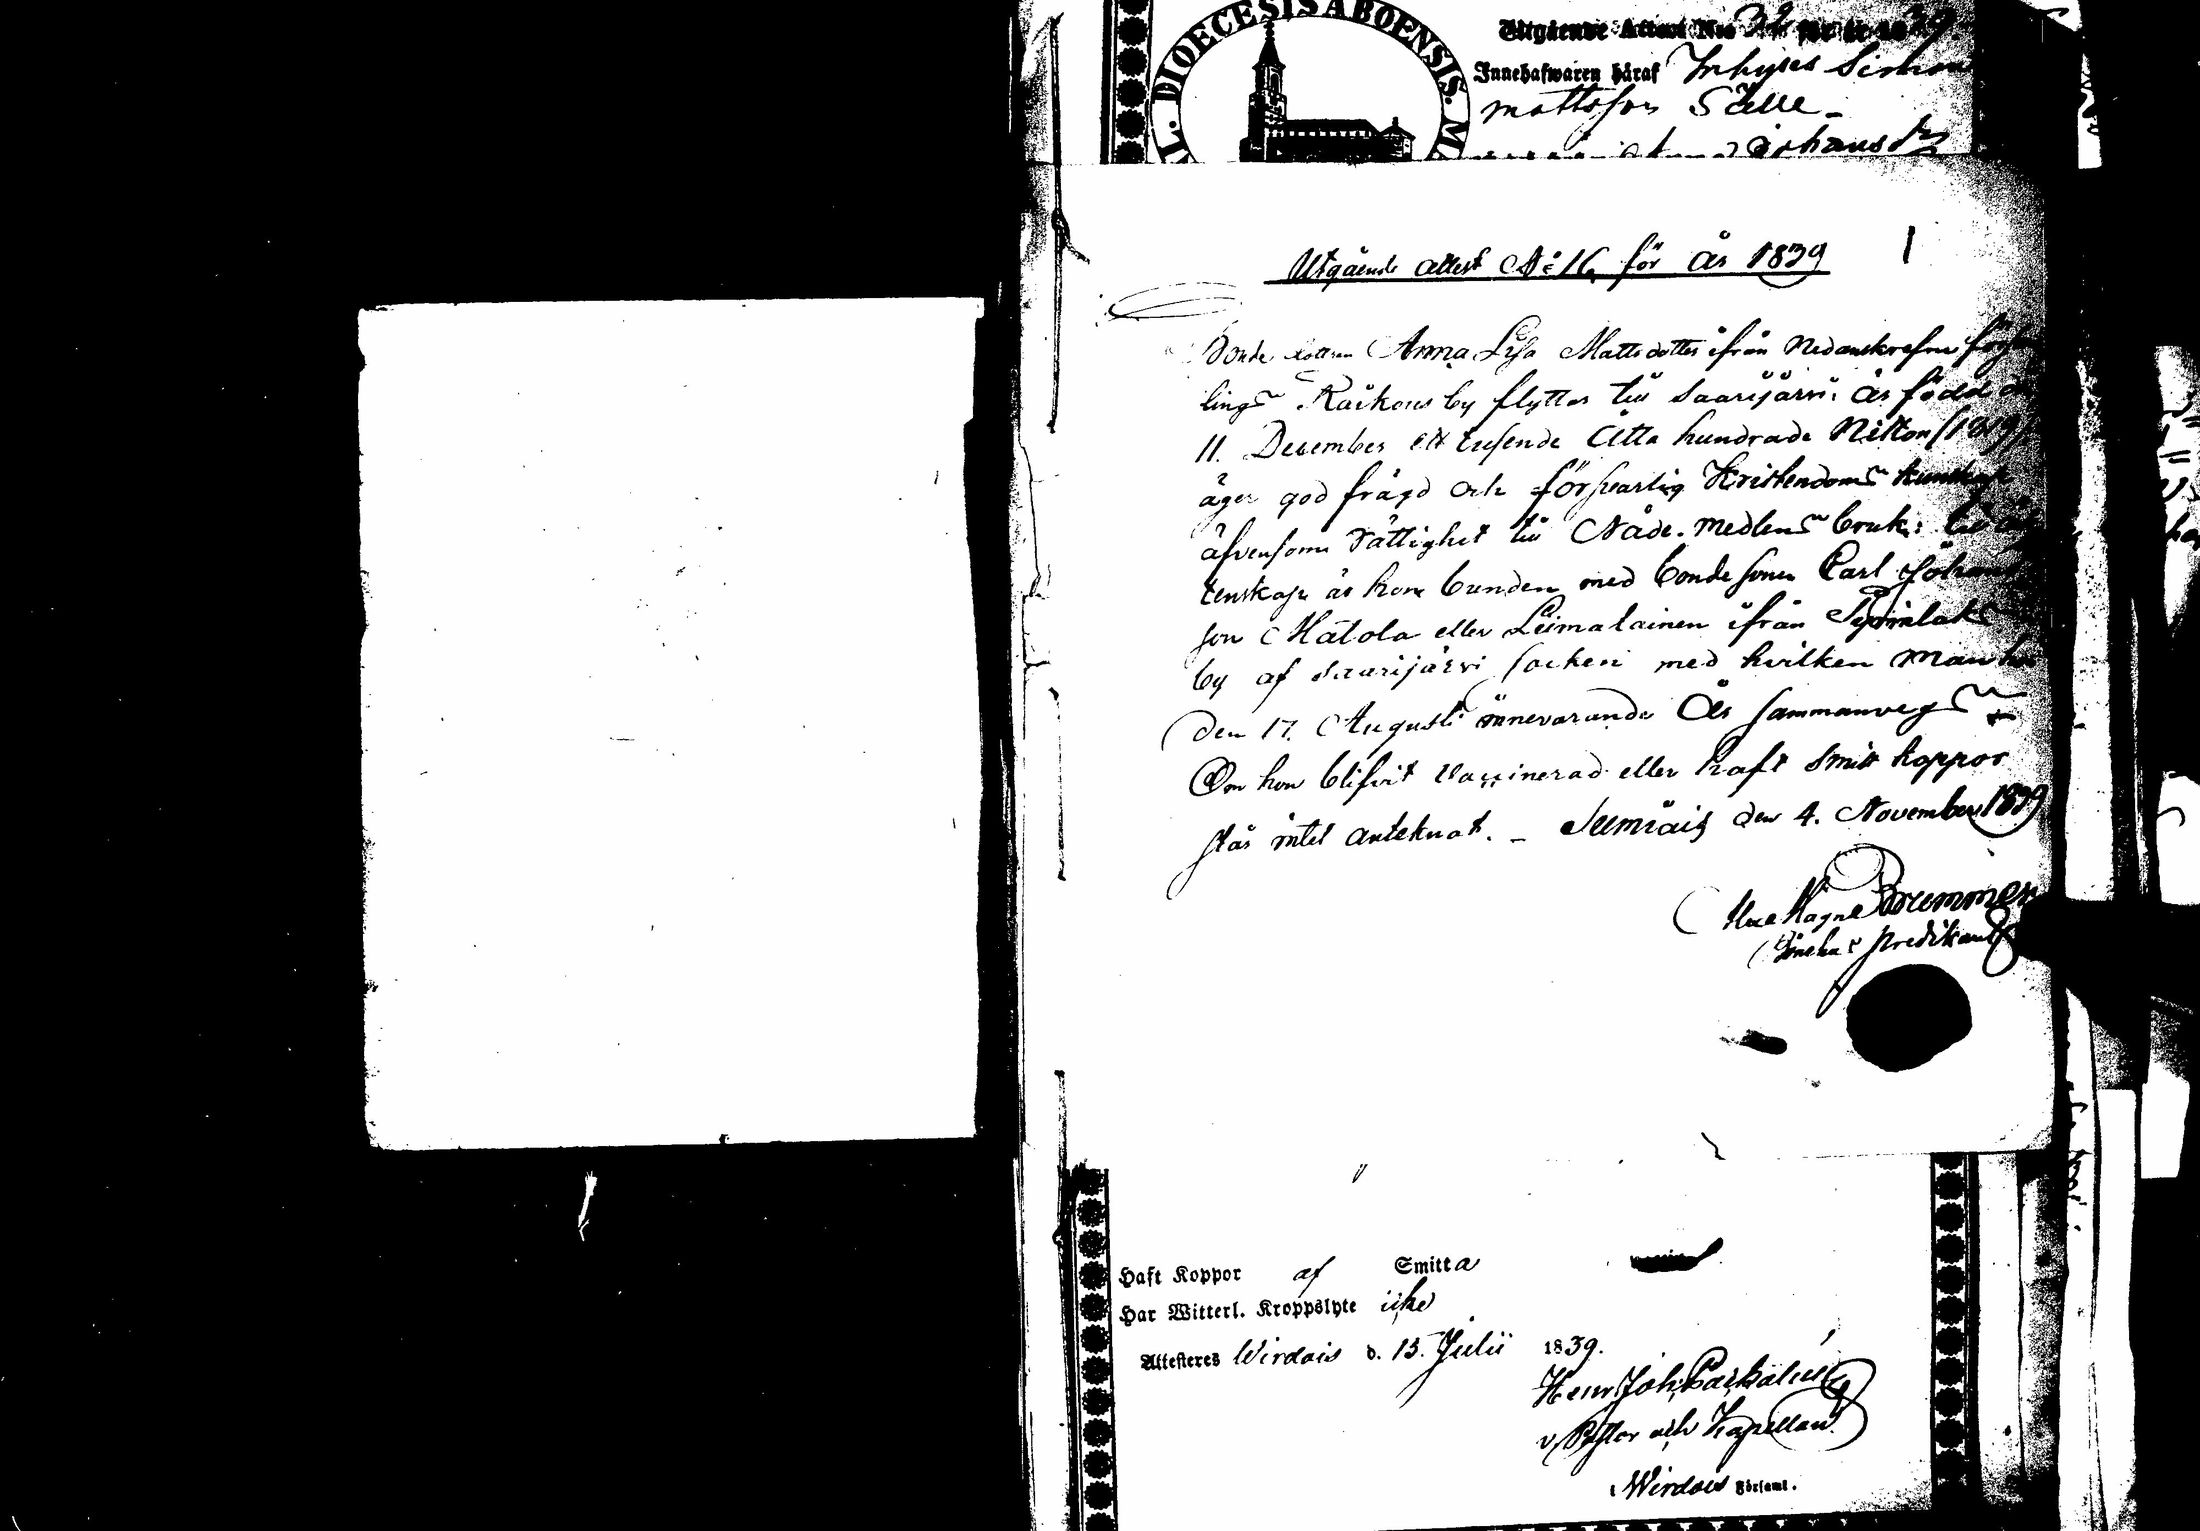 L. DIOECESIS ABOENSIS. M
Utgående Attest N:o 32 för år 1839.
Innehafwaren häraf Inhyses Simon
Mattsson Sälle -
Johansdr
Utgående attest N:o 16 för År 1839
1
Bonde dottren Anna Lisa Mattsdotter ifrån Nedanskrefne förs
lings Räikons by flyttar till Saarijärvi: är född den
11. December ett tusende Åtta hundrade Nitton (1819)
äger god frägd och försvarlig Kristendoms kunskap
äfvensom rättighet till Nåde-medlens bruk:
tenskap är hon bunden med bondesonen Carl Johans
son Matola eller Leimalainen ifrån
by af Saarijärvi socken med hvilken man hon
den 17. Augusti innevarande År sammanvegs
Om hon blifvit Vaccinerad eller haft Smitt koppor
står intet anteknat. - Sumiais den 4. November 1839
Magn Brummer
Predikant
Haft Koppor af Smitta
Har Witterl. Kroppslyte icke
Attesteres Wirdois d. 15. Julii 1839.
Henr Joh
v. Pastor och Kapellan
Wirdois Församl.